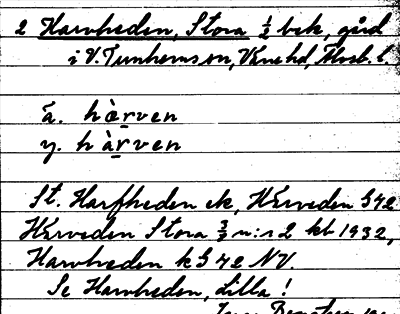 2 Harvheden, Stora ½ bek, gård
i V. Tunhems sn, Väne hd, Älvsb. l.
ä. hὰrven
y. hàrven
St. Harfheden ek, Härveden G42
Härveden Stora ⅔ n:r 2 kb 1932,
Harvheden k G 42 NV.
Se Harvheden, Lilla!